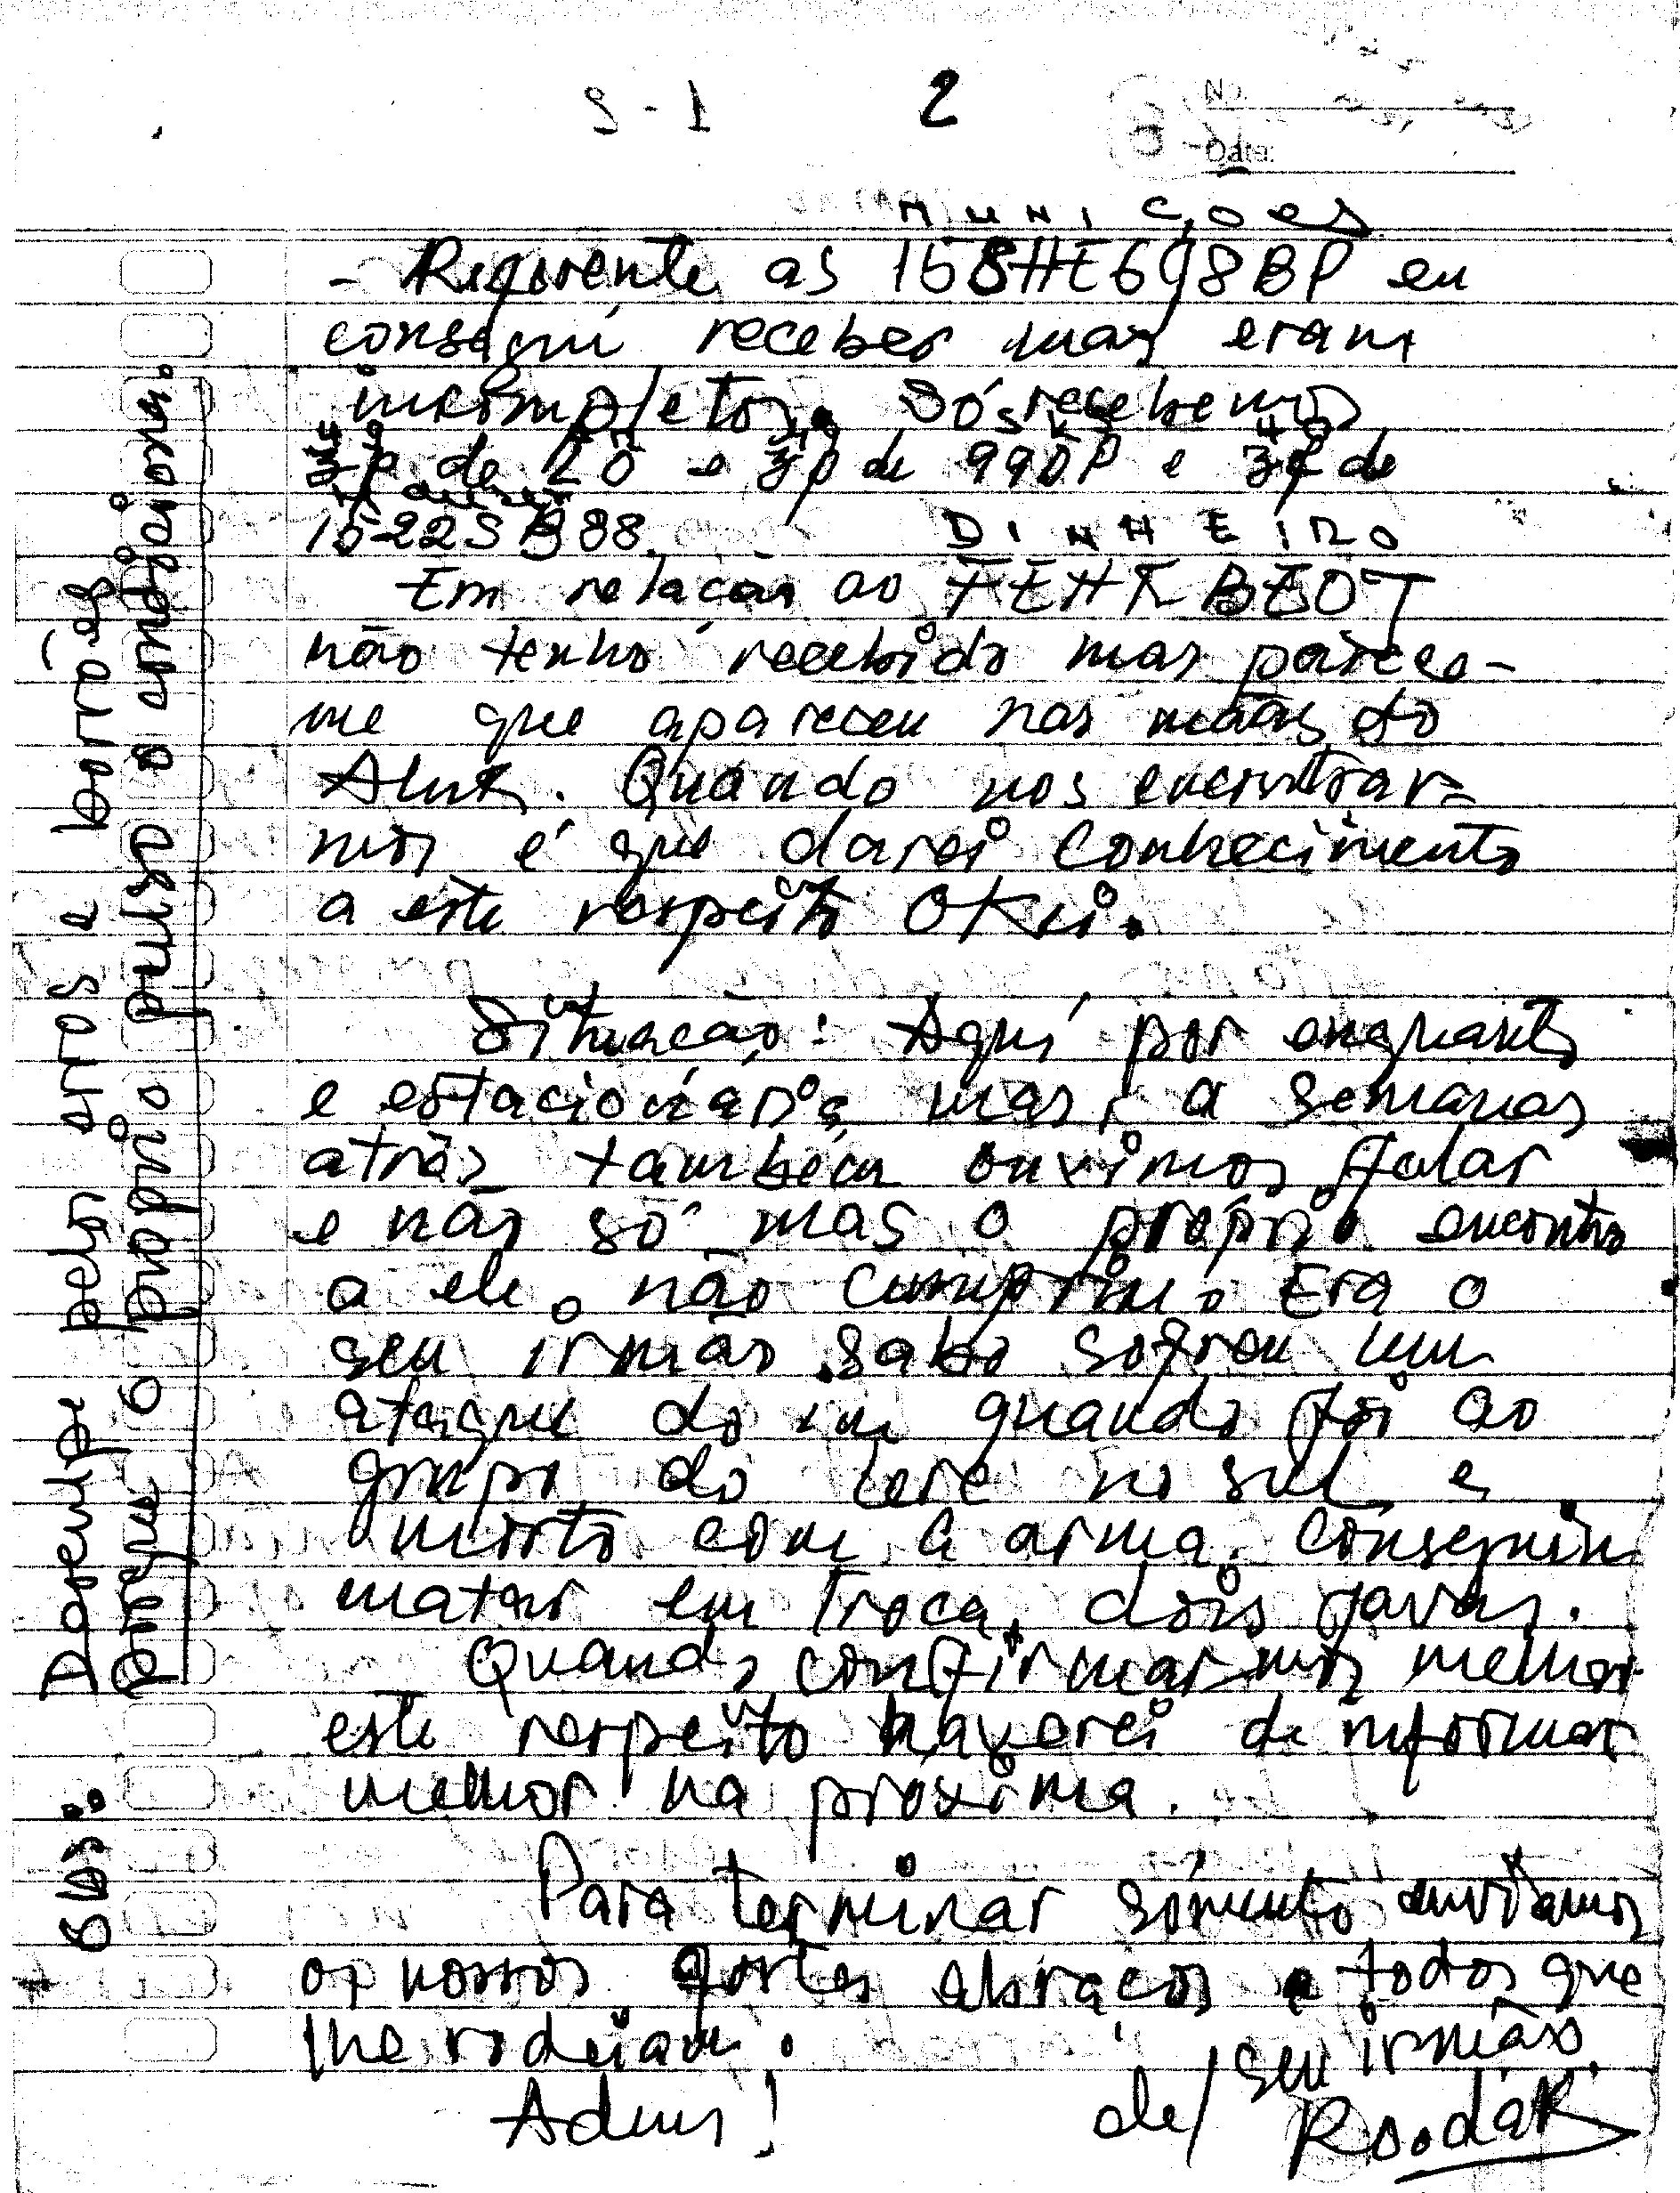 S-1 2
No.
Data:
MUNIÇOES
- Referente as 158HE698BP eu
consegui receber mas eram
incompletos. Só recebemos
3p de 20 e 3p de 990P e 3p de
15-22SB88.
DINHEIRO
Em relação ao FEHKBEOT
não tenho recebido mas parece-
me que apareceu nas mãos do
Aluk. Quando nos encontrar-
mos é que darei conhecimento
a este respeito OKei.
Situação: Aqui por enquanto
e estacionária, mas, a semanas
atrás também ouvimos falar
e não só mas o próprio encontro
a ele, não cumpriu. Era o
seu irmão sabo sofreu um
ataque do in quando foi ao
grupo do Lere no sul e
morto com a arma. conseguiu
matar em troca, dois javas.
Quando confirmarmos melhor
este respeito haverei de informar
melhor na próxima.
Para terminar sómente enviamos
os nossos fortes abraços a todos que
lhe rodeiam.
Adeus! de/ seu irmão.
Roodak
OBS: Desculpe pelos erros e borrões
porque o próprio pulso é emocional.